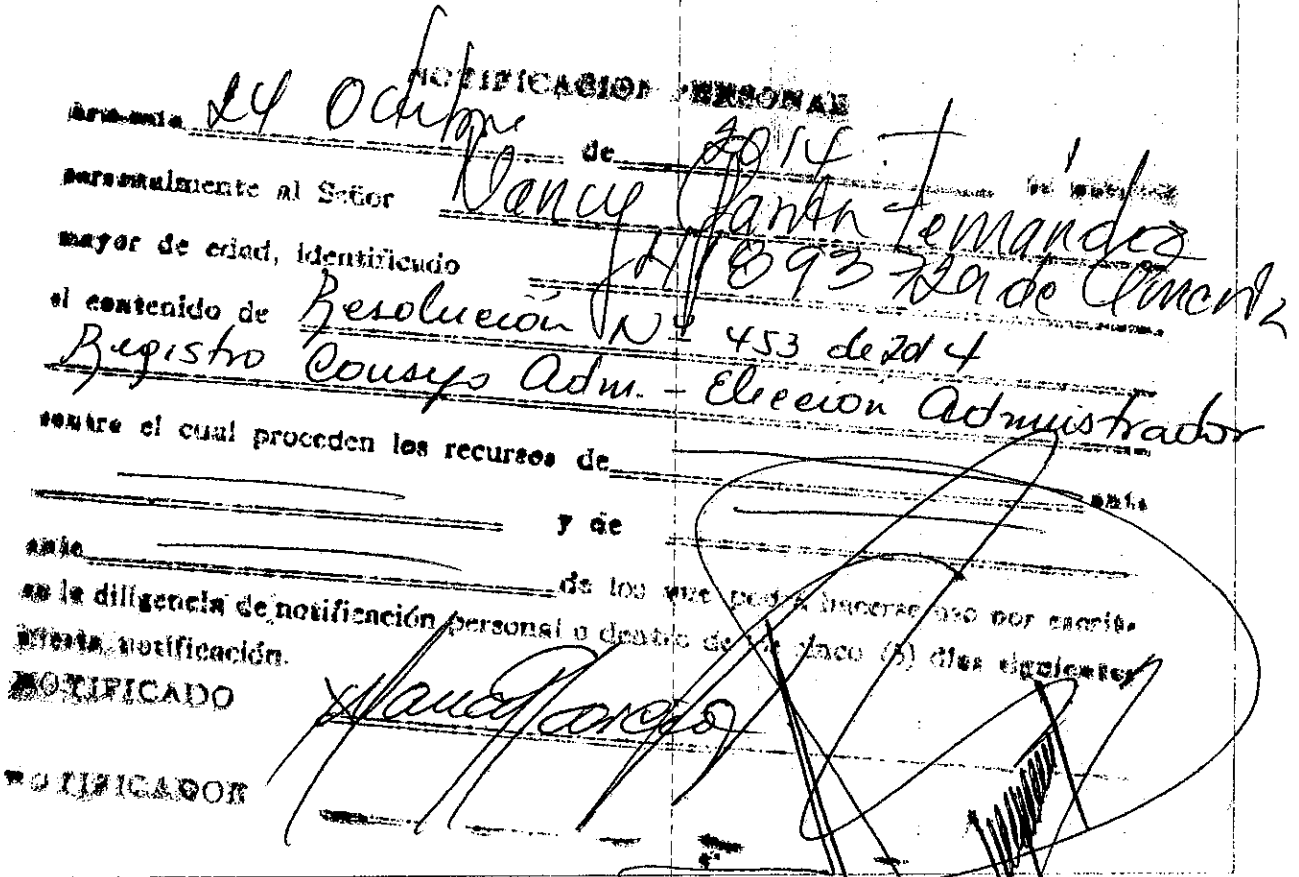 NOTIFICACION PERSONAL
24 Octubre de 2014
personalmente al Señor Nancy Fernandez
mayor de edad, identificado de
el contenido de Resolución Nº 453 de 2014
Registro Consejo Adm. - Elección Administrador
contra el cual proceden los recursos de ante
y de
ante de los que podrá hacerse uso por escrito
en la diligencia de notificación personal o dentro de los cinco (5) días siguientes
notificación.
NOTIFICADO
NOTIFICADOR